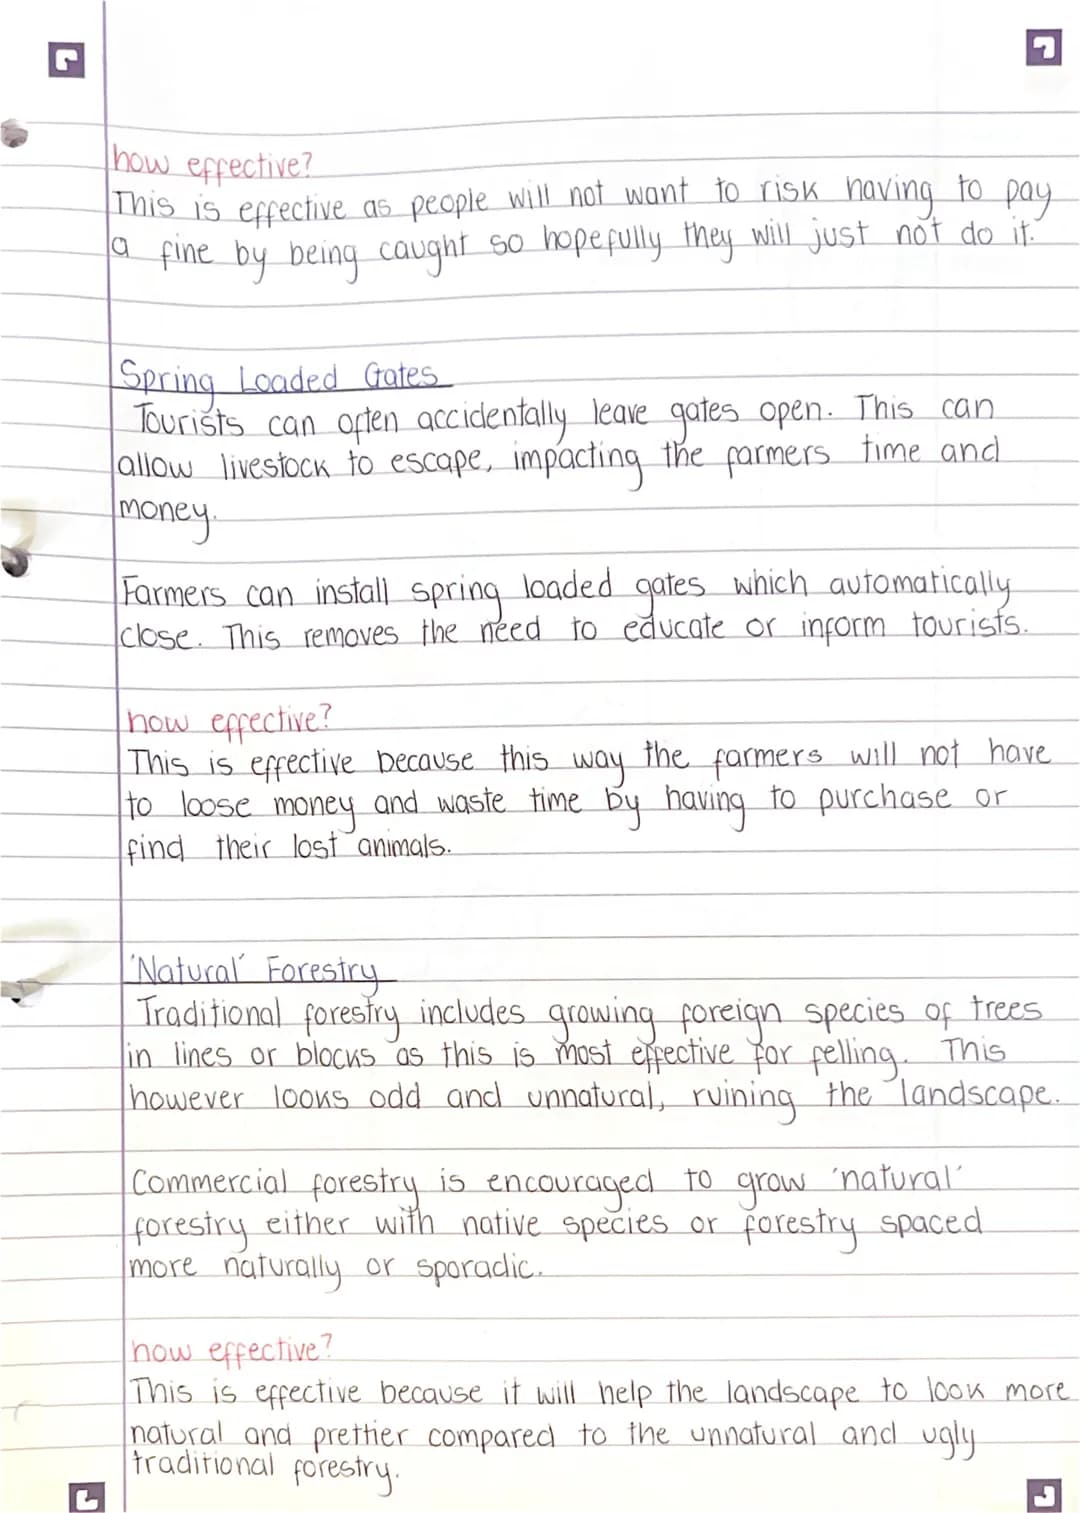 how effective?
This is effective as people will not want to risk having to pay
a fine by being caught so hopefully they will just not do it.
Spring Loaded Gates
Tourists can often accidentally leave gates open. This can
allow livestock to escape, impacting the farmers time and
money.
Farmers can install spring loaded gates which automatically
close. This removes the need to educate or inform tourists.
how effective?
This is effective because this way the farmers will not have
to loose money and waste time by having to purchase or
find their lost animals.
'Natural' Forestry
Traditional forestry includes growing foreign species of trees
in lines or blocks as this is most effective for felling. This
however looks odd and unnatural, ruining the landscape.
Commercial forestry is encouraged to grow 'natural'
forestry either with native species or forestry spaced
more naturally or sporadic.
how effective?
This is effective because it will help the landscape to look more
natural and prettier compared to the unnatural and ugly
traditional forestry.